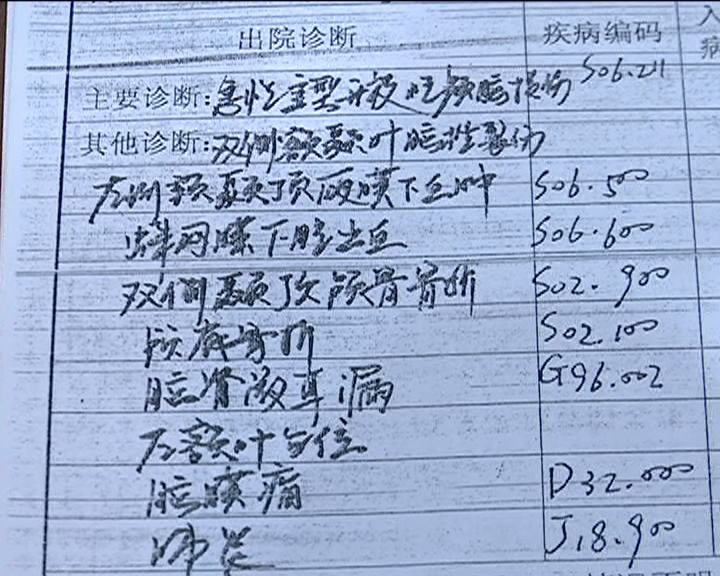 出院诊断 疾病编码 入
病
主要诊断:急性重型开放性颅脑损伤 S06.211
其他诊断:双侧额颞叶脑挫裂伤
左侧额颞顶硬膜下血肿 S06.500
蛛网膜下腔出血 S06.600
双侧颞顶颅骨骨折 S02.900
颅底骨折 S02.100
脑脊液耳漏 G96.002
左额叶占位
脑膜瘤 D32.000
肺炎 J18.900